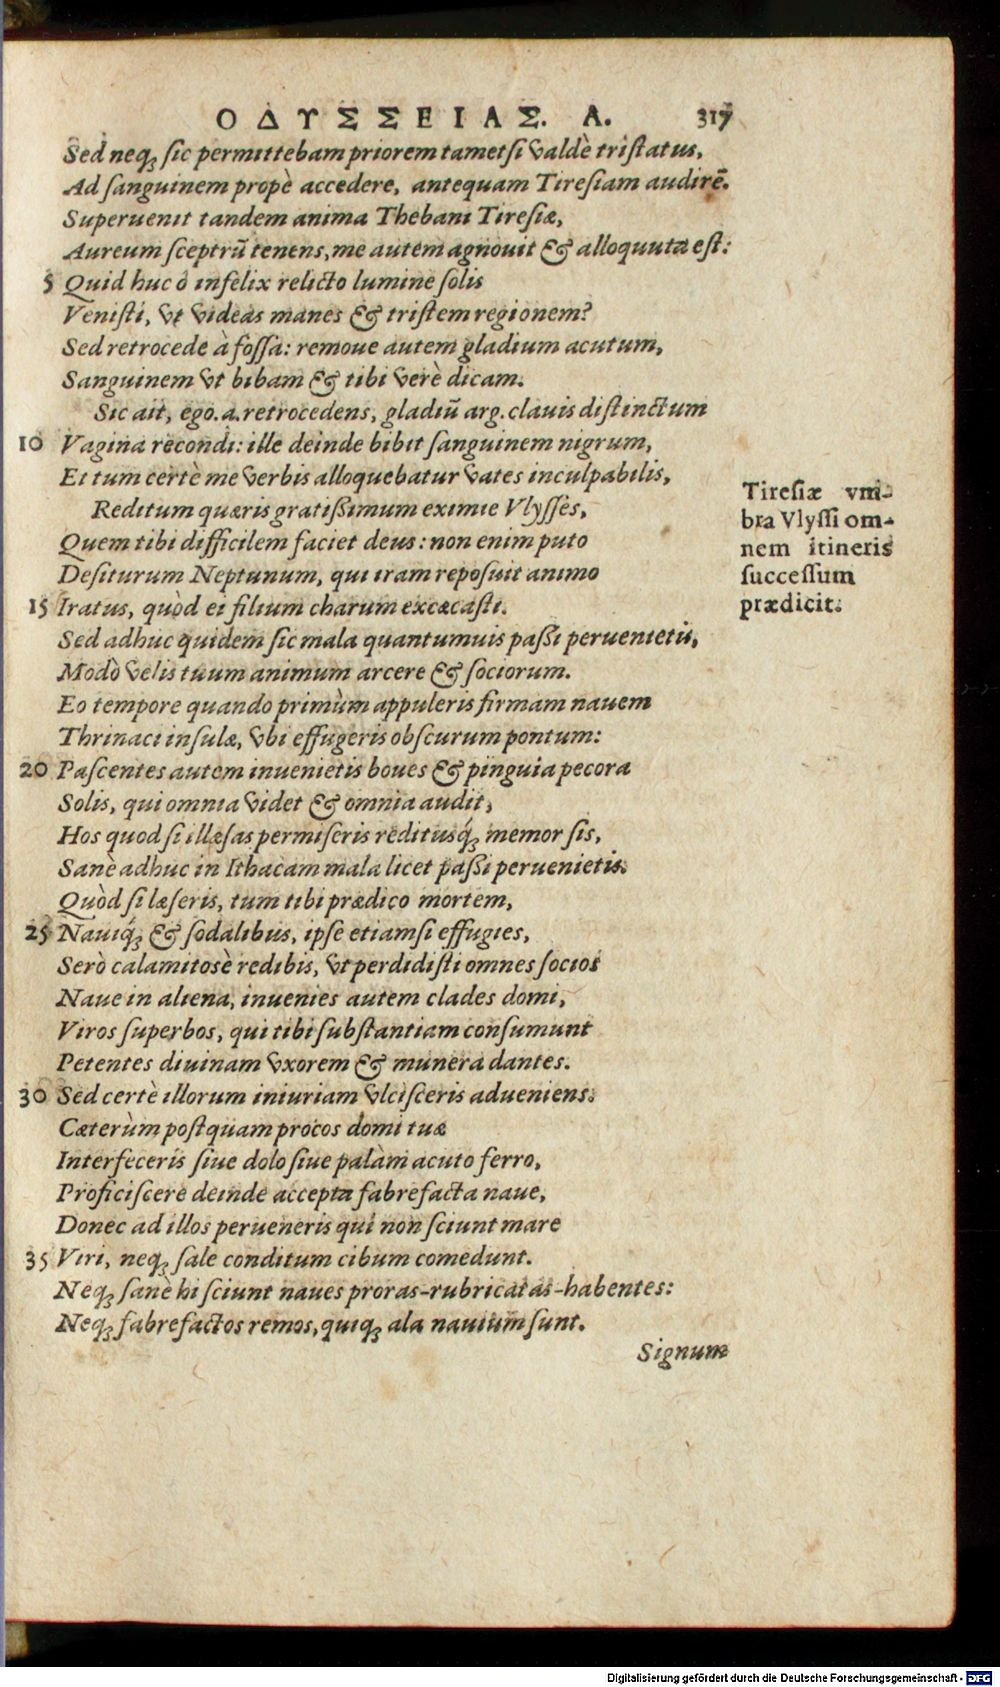 ΟΔΥΣΣΕΙΑΣ. Λ. 317
Sed neqꝫ ſic permittebam priorem tametſi valdè triſtatus,
Ad ſanguinem propè accedere, antequam Tireſiam audirẽ.
Superuenit tandem anima Thebani Tireſiæ,
Aureum ſceptrũ tenens, me autem agnouit & alloquuta eſt:
5 Quid huc ô infelix relicto lumine ſolis
Veniſti, vt videas manes & triſtem regionem?
Sed retrocede à foſſa: remoue autem gladium acutum,
Sanguinem vt bibam & tibi verè dicam.
Sic ait, ego.a.retrocedens, gladiũ arg. clauis diſtinctum
10 Vagina recondi: ille deinde bibit ſanguinem nigrum,
Et tum certè me verbis alloquebatur vates inculpabilis,
Reditum quæris gratiſſimum eximie Vlyſſes,
Quem tibi difficilem faciet deus: non enim puto
Deſiturum Neptunum, qui iram repoſuit animo
15 Iratus, quòd ei filium charum excæcaſti.
Sed adhuc quidem ſic mala quantumuis paſſi peruenietis,
Modò velis tuum animum arcere & ſociorum.
Eo tempore quando primùm appuleris firmam nauem
Thrinaci inſulæ, vbi effugeris obſcurum pontum:
20 Paſcentes autem inuenietis boues & pinguia pecora
Solis, qui omnia videt & omnia audit,
Hos quod ſi illæſas permiſeris reditusq́ꝫ memor ſis,
Sanè adhuc in Ithacam mala licet paſſi peruenietis.
Quòd ſi læſeris, tum tibi prædico mortem,
25 Nauiq́ꝫ & ſodalibus, ipſe etiamſi effugies,
Serò calamitosè redibis, vt perdidiſti omnes ſocios
Naue in aliena, inuenies autem clades domi,
Viros ſuperbos, qui tibi ſubſtantiam conſumunt
Petentes diuinam vxorem & munera dantes.
30 Sed certè illorum iniuriam vlciſceris adueniens.
Cæterùm poſtquam procos domi tuæ
Interfeceris ſiue dolo ſiue palàm acuto ferro,
Proficiſcere deinde accepta fabrefacta naue,
Donec ad illos perueneris qui non ſciunt mare
35 Viri, neqꝫ ſale conditum cibum comedunt.
Neqꝫ ſanè hi ſciunt naues proras-rubricatas-habentes:
Neqꝫ fabrefactos remos, quiqꝫ ala nauium ſunt.
Signum
Tireſiæ vm-
bra Vlyſſi om-
nem itineris
ſucceſſum
prædicit.
Digitalisierung gefördert durch die Deutsche Forschungsgemeinschaft - DFG